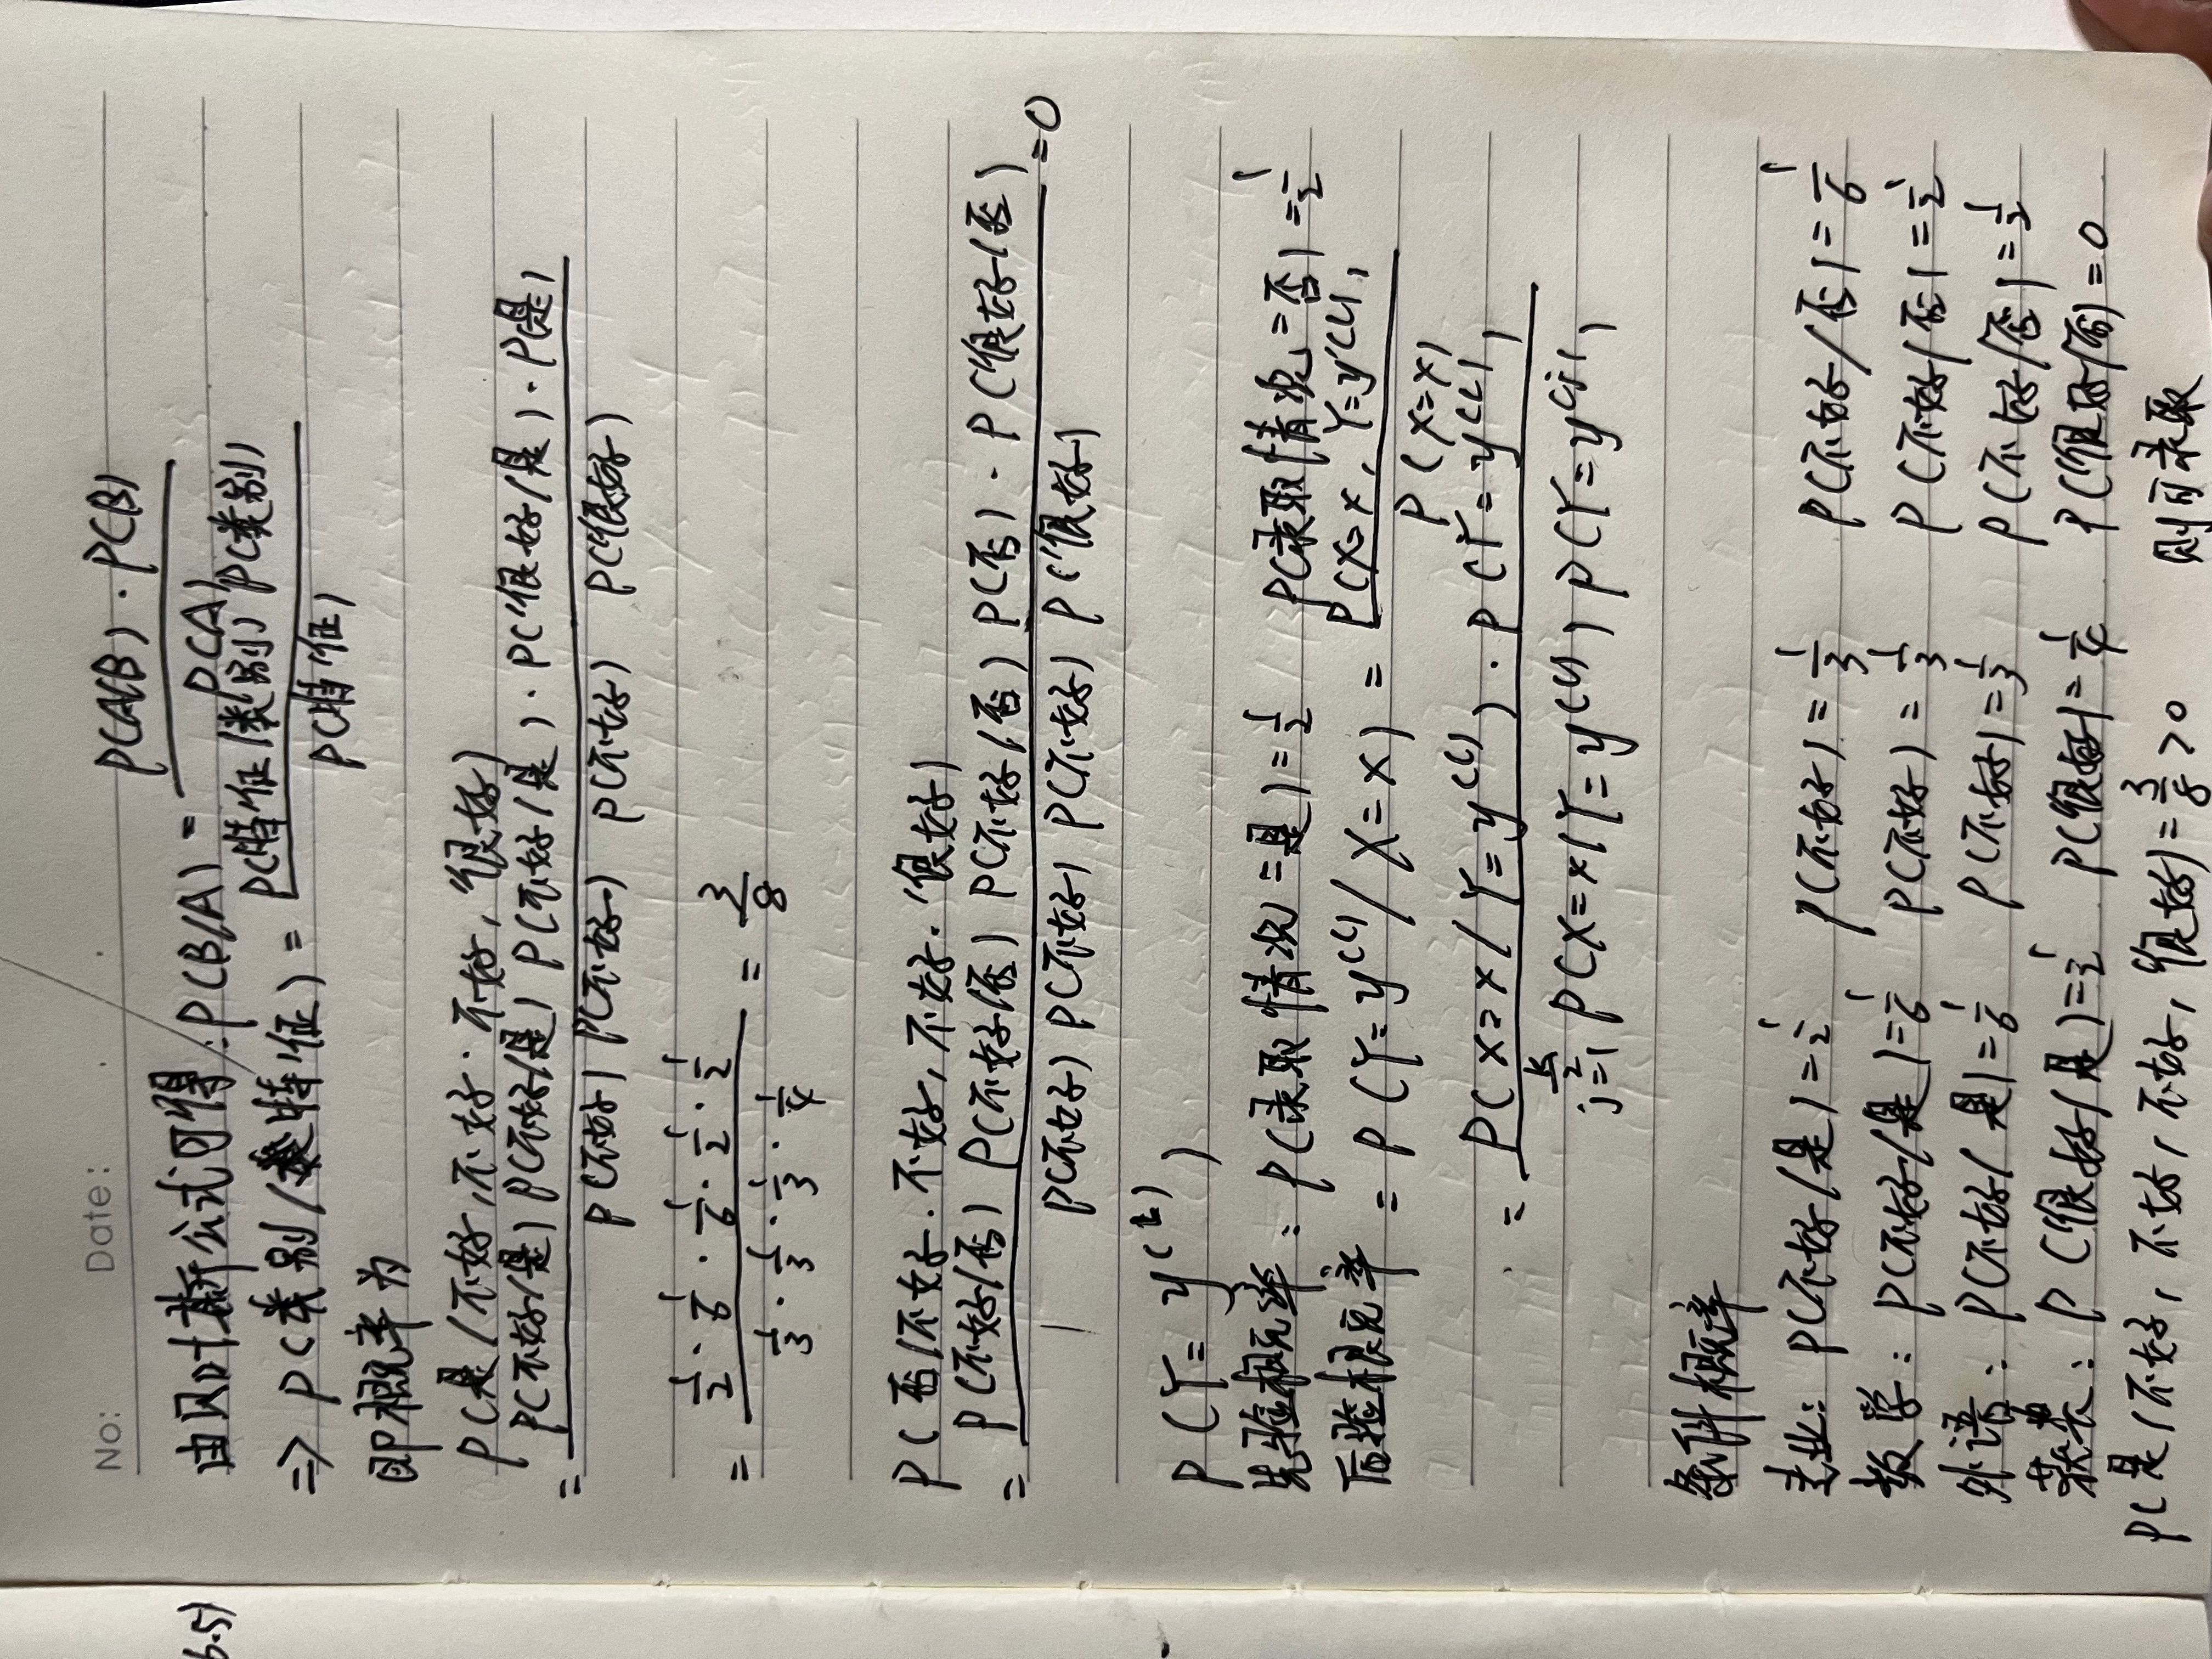 No: Date:
由贝叶斯公式可得: P(B/A) = P(A/B)·P(B) / P(A)
⇒ P(类别/特征) = P(特征/类别) P(类别) / P(特征)
即概率为
P(是/不好,不好,不好,很好)
= P(不好/是) P(不好/是) P(不好/是)·P(很好/是)·P(是) / P(不好) P(不好) P(不好) P(很好)
= 1/2·1/6·1/6·1/2·1/2 / 1/3·1/3·1/3·1/4 = 3/8
P(否/不好.不好,不好.很好)
= P(不好/否) P(不好/否) P(不好/否) P(否)·P(很好/否) / P(不好) P(不好) P(不好) P(很好) = 0
P(Y=y(k))
先验概率: P(录取情况=是)=1/2 P(录取情况=否)=1/2
后验概率 = P(Y=y(i)/X=x) = P(X=x, Y=y(i)) / P(X=x)
= P(X=x/Y=y(i))·P(Y=y(i)) / Σ j=1 k P(X=x|Y=y(j)) P(Y=y(j))
条件概率
专业: P(不好/是)=1/2 P(不好)=1/3 P(不好/否)=1/6
数学: P(不好/是)=1/6 P(不好)=1/3 P(不好/否)=1/2
外语: P(不好/是)=1/6 P(不好)=1/3 P(不好/否)=1/2
获奖: P(很好/是)=1/2 P(很好)=1/4 P(很好/否)=0
P(是/不好,不好,不好,很好)=3/8>0 则可录取
6.5)